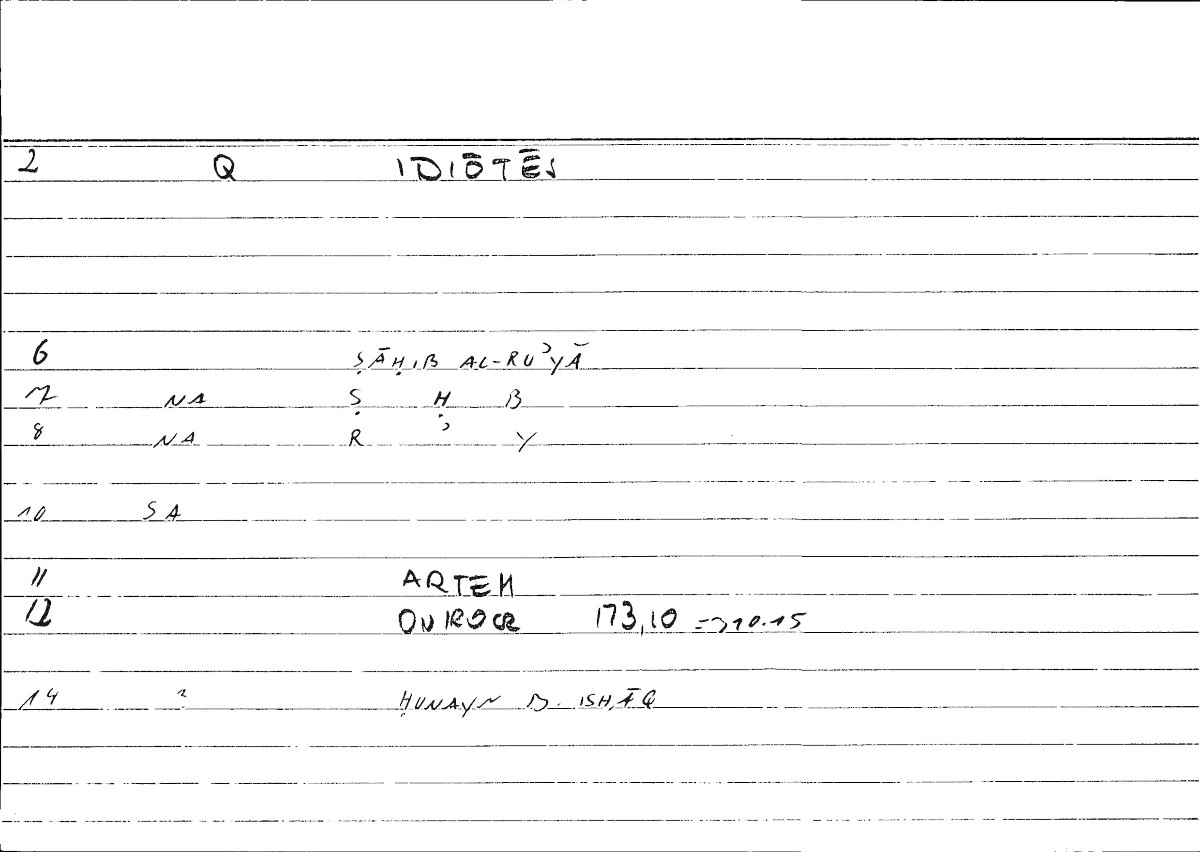 2 Q IDIŌTĒS
6 ṢĀḤIB AL-RUʾYĀ
7 NA Ṣ Ḥ B
8 NA R ʾ Y
10 SA
11 ARTEM
12 ONIROCR 173,10 => 10.15
14 2 ḤUNAYN B. ISḤĀQ